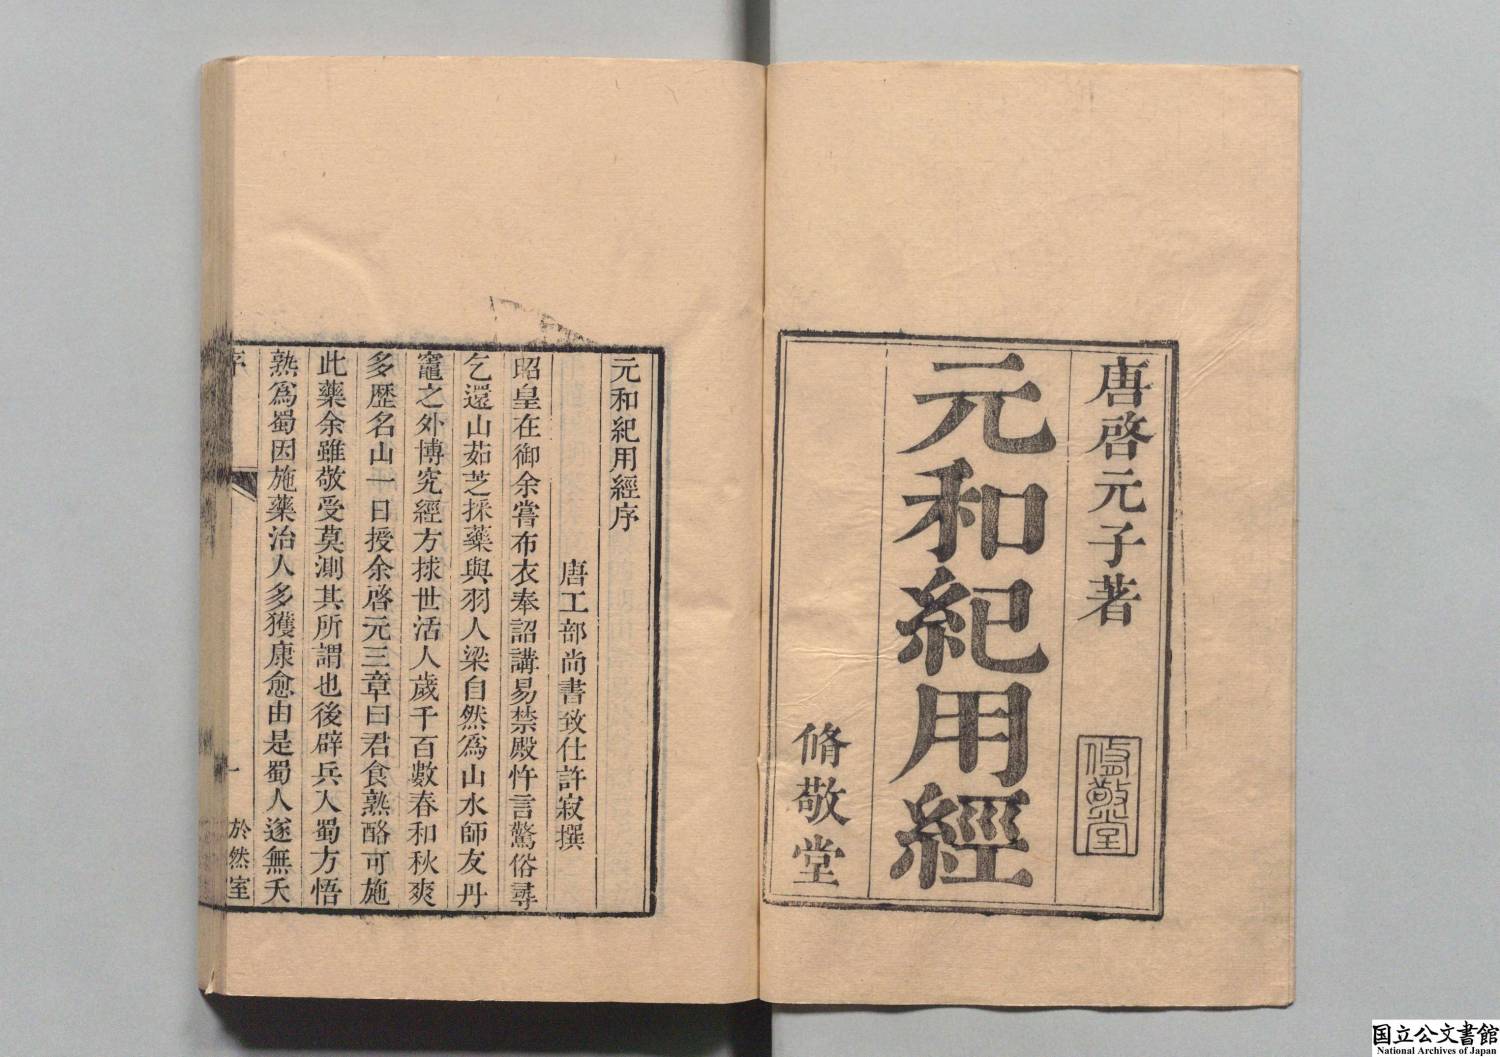 唐啓元子著
脩敬堂
元和紀用經
脩敬堂
元和紀用經序
唐工部尚書致仕許寂撰
昭皇在御余嘗布衣奉詔講易禁殿忤言驚俗尋
乞還山茹芝採藥與羽人梁自然為山水師友丹
竈之外博究經方捄世活人歲千百數春和秋爽
多歷名山一日授余啓元三章曰君食熟酪可施
此藥余雖敬受莫測其所謂也後辟兵入蜀方悟
熟為蜀因施藥治人多獲康愈由是蜀人遂無夭
序
一
於然室
国立公文書館
National Archives of Japan